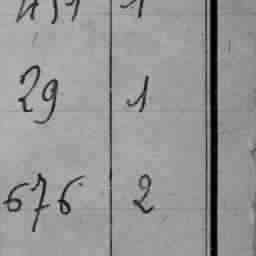 29 1
676 2